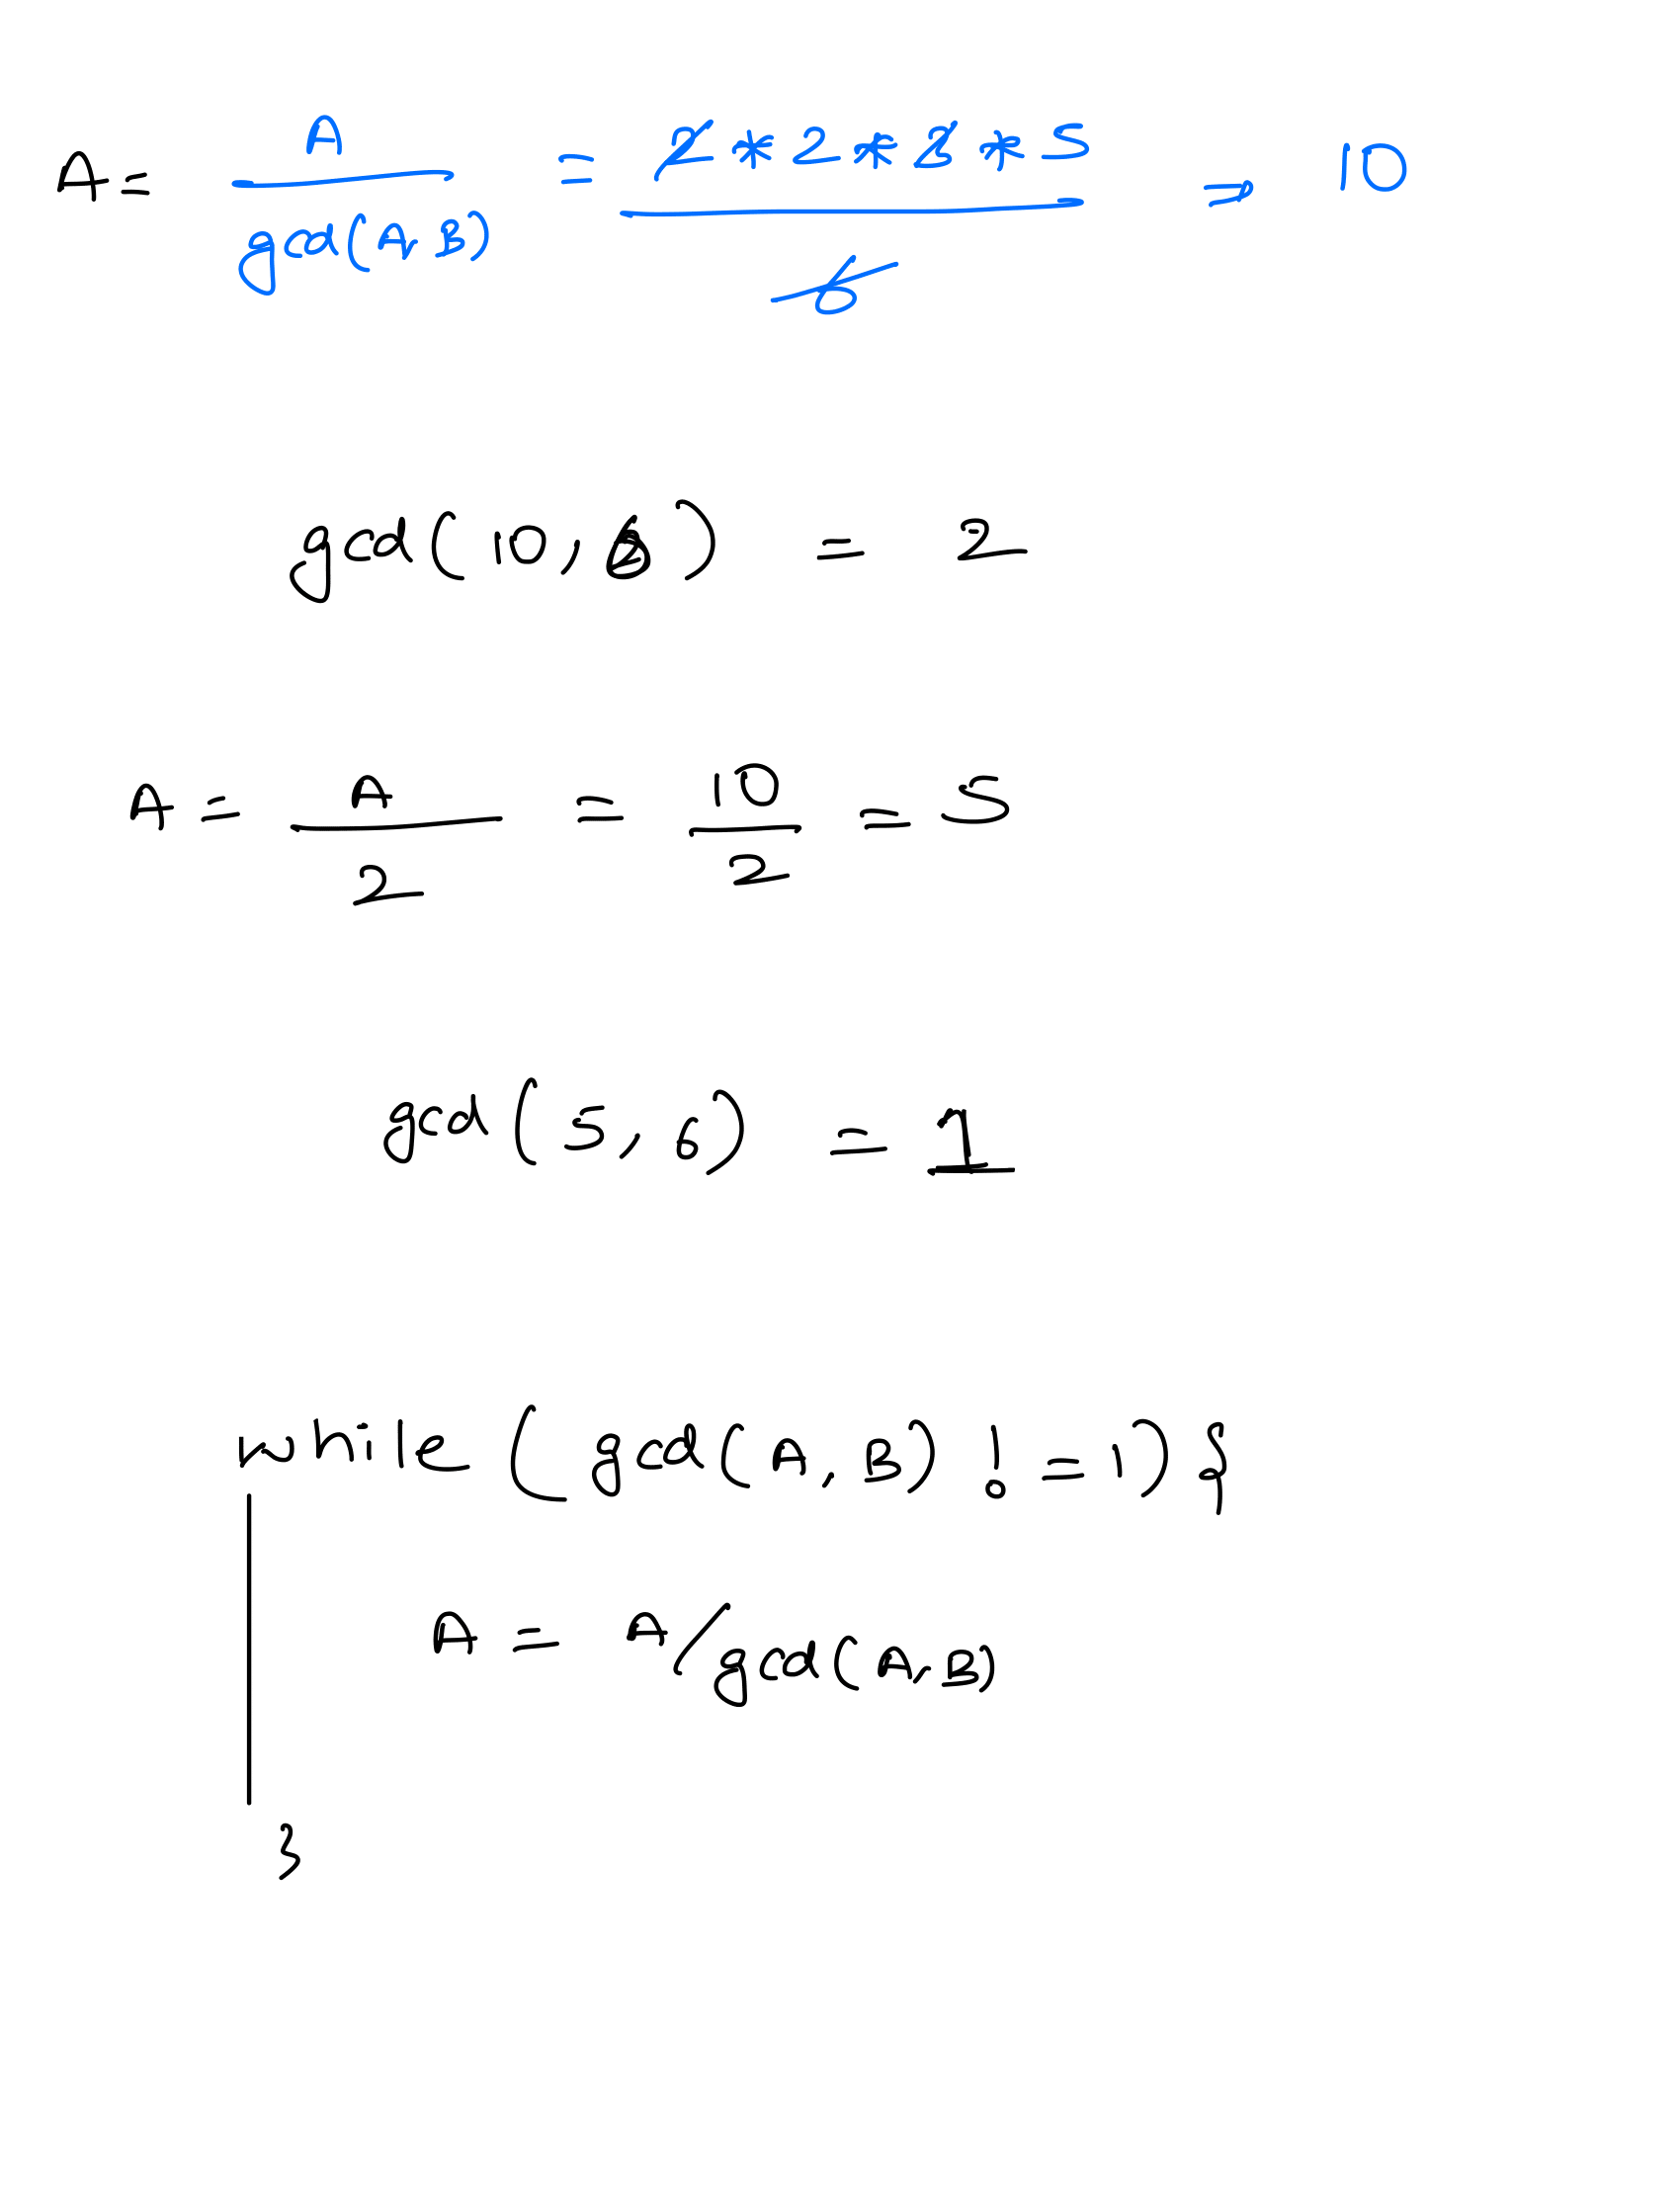 A = A / gcd(A,B) = 2 * 2 * 3 * 5 / 6 => 10
gcd(10, 6) = 2
A = A / 2 = 10 / 2 = 5
gcd(5, 6) = 1
while (gcd(A, B) != 1) {
A = A/gcd(A,B)
}